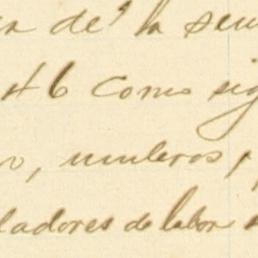 de la
46 Como sig
o, muleros,
ladores de labor